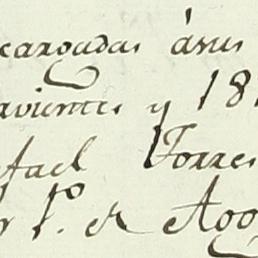 cargadas á sus
rvientes y 18
afael Torres
1º. de Ago